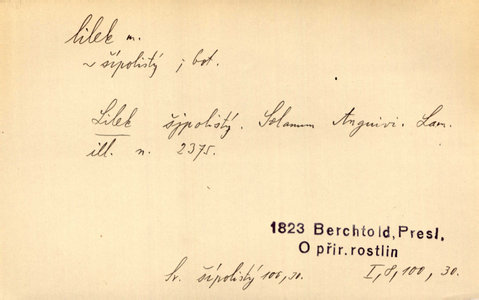 lilek m.
~ šípolistý ; bot.
Lilek šjpolistý. Solanum Anguivi. Lam.
ill. n. 2375.
1823 Berchtold, Presl,
O přir. rostlin
Sv. šípolistý 108, 30. I, 8, 100, 30.